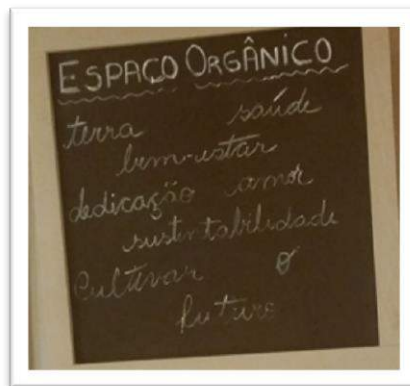 ESPAÇO ORGÂNICO
terra saúde
bem-estar
dedicação amor
sustentabilidade
Cultivar o
futuro